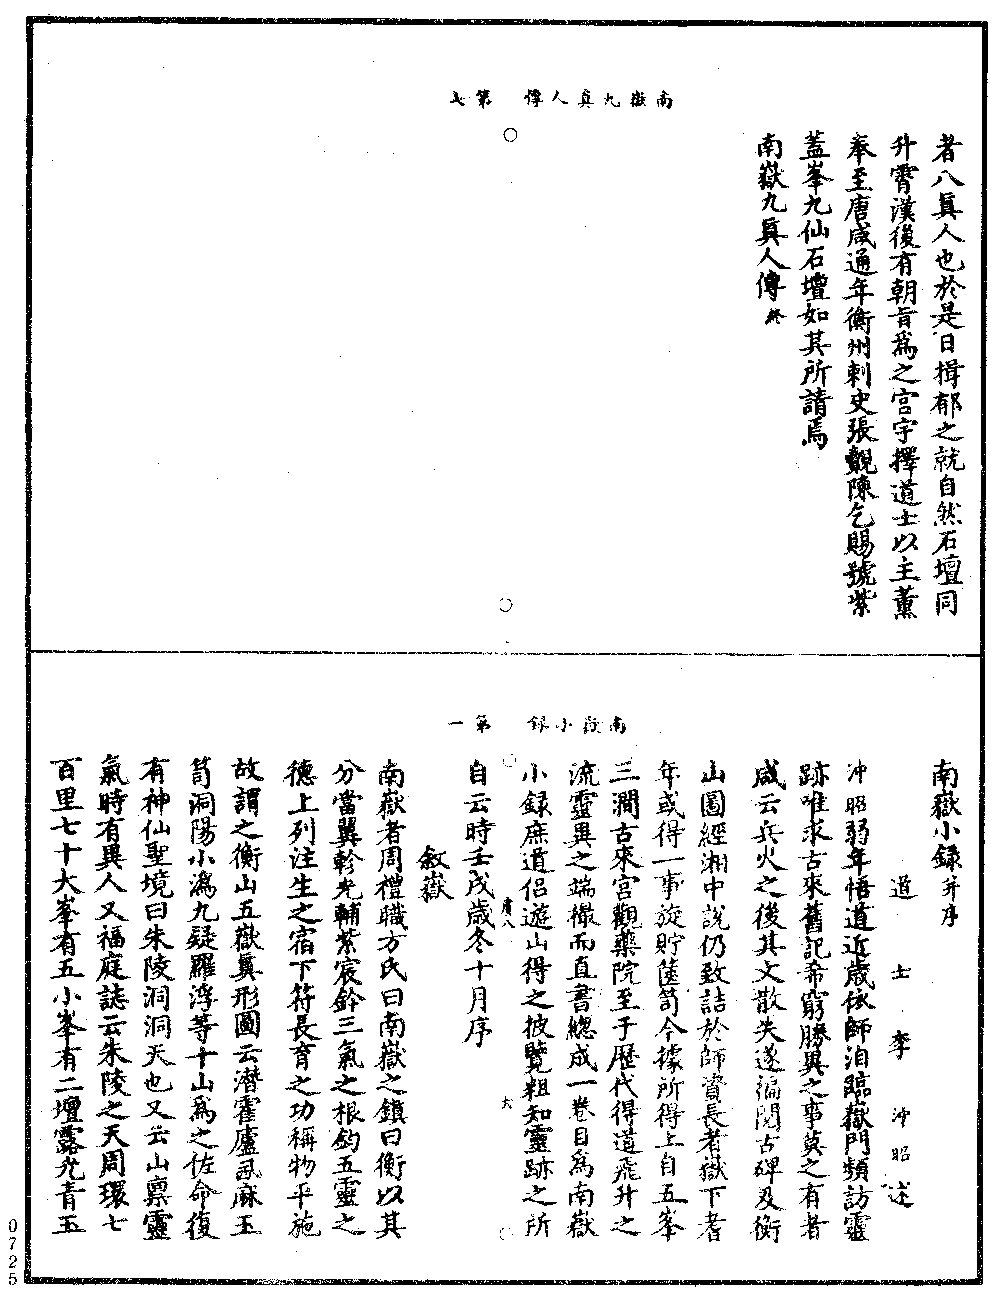 南嶽九真人傳　第七
者八真人也於是日揖郁之就自然石壇同
升霄漢後有朝旨爲之宮宇擇道士以主薰
奉至唐咸通年衡州刺史張覿陳乞賜號紫
蓋峯九仙石壇如其所請焉
南嶽九真人傳終
南嶽小録　第一
南嶽小録并序
道士李冲昭述
冲昭弱年悟道近歲依師洎臨嶽門頻訪靈
跡唯求古來舊記希窮勝異之事莫之有者
咸云兵火之後其文散失遂徧閱古碑及衡
山圖經湘中說仍致詰於師資長者嶽下耆
年或得一事旋貯篋笥今據所得上自五峯
三澗古來宮觀藥院至于歷代得道飛升之
流靈異之端撮而直書總成一卷目爲南嶽
小録庶道侶遊山得之披覽粗知靈跡之所
自云時壬戌歲冬十月序
六
敘嶽
南嶽者周禮職方氏曰南嶽之鎮曰衡以其
分當翼軫光輔紫宸鈐三氣之根鈞五靈之
德上列注生之宿下符長育之功稱物平施
故謂之衡山五嶽真形圖云潛霍廬風麻玉
笥洞陽小溈九疑羅浮等十山爲之佐命復
有神仙聖境曰朱陵洞洞天也又云山禀靈
氣時有異人又福庭誌云朱陵之天周環七
百里七十大峯有五小峯有二壇露光青玉
0725